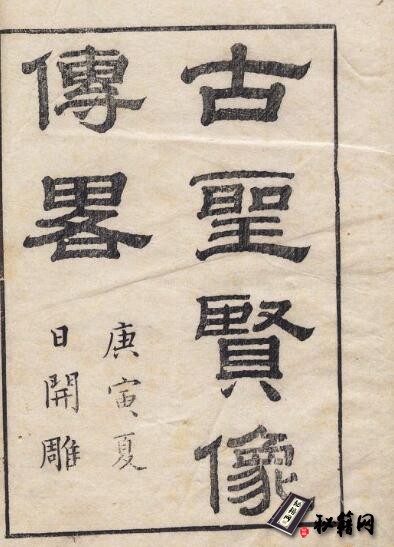 古聖賢像
傳畧
庚寅夏
日開雕
秘籍网